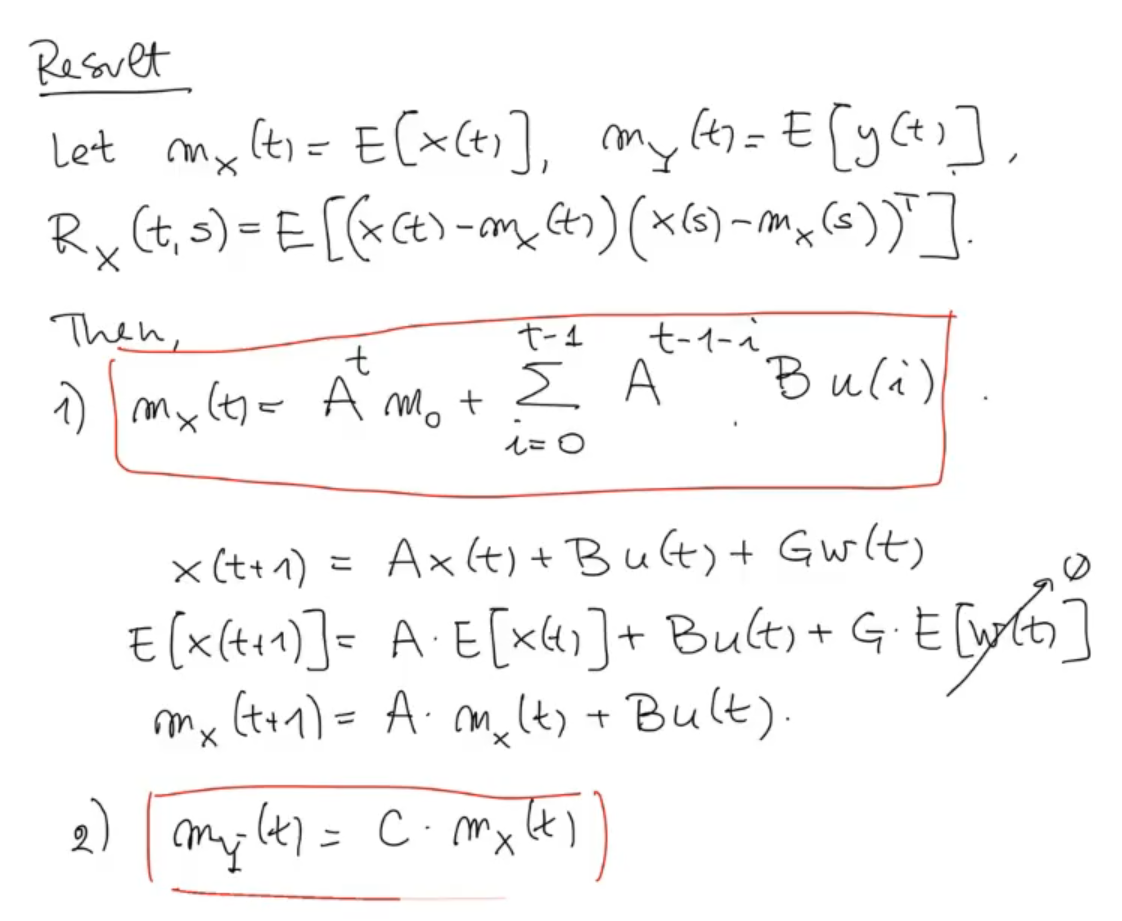 Result
Let m_x(t) = E[x(t)], m_y(t) = E[y(t)],
R_x(t,s) = E[(x(t) - m_x(t))(x(s) - m_x(s))^T].
Then,
1) m_x(t) = A^t m_0 + ∑_{i=0}^{t-1} A^{t-1-i} B u(i).
x(t+1) = Ax(t) + Bu(t) + Gw(t)
E[x(t+1)] = A·E[x(t)] + Bu(t) + G·E[w(t)] 0
m_x(t+1) = A·m_x(t) + Bu(t).
2) m_y(t) = C·m_x(t)